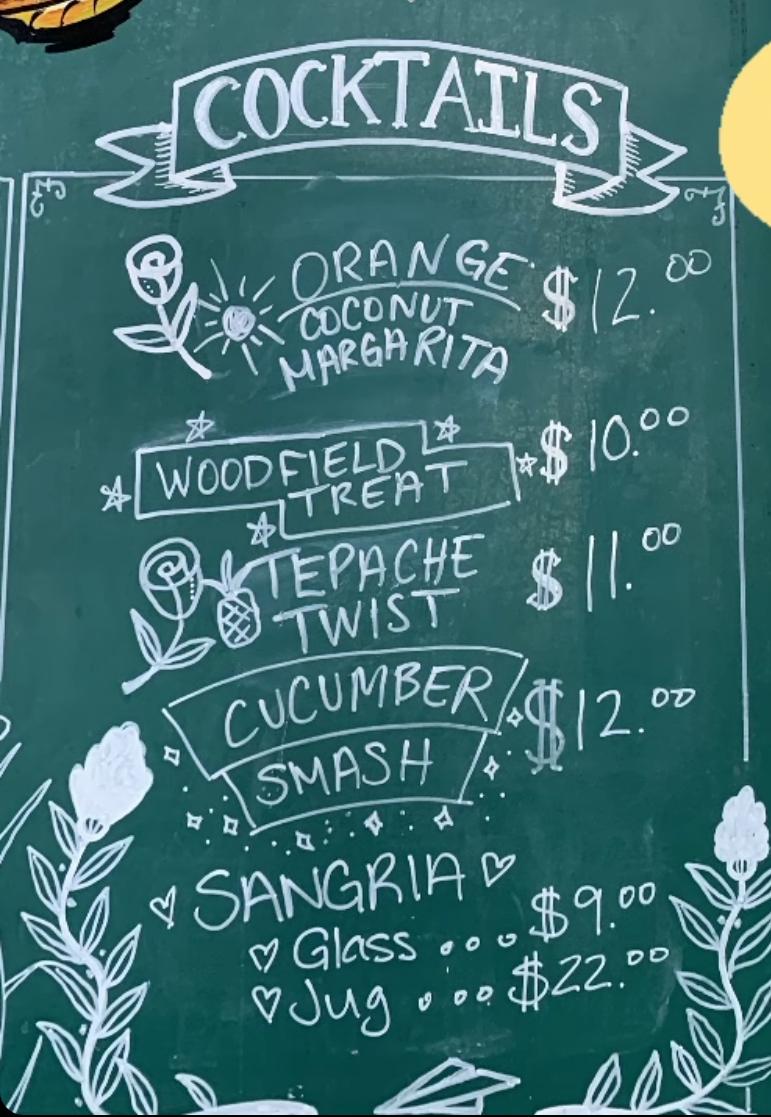 COCKTAILS
ORANGE $12.00
COCONUT
MARGARITA
WOODFIELD $10.00
TREAT
TEPACHE $11.00
TWIST
CUCUMBER $12.00
SMASH
SANGRIA
Glass ... $9.00
Jug .... $22.00